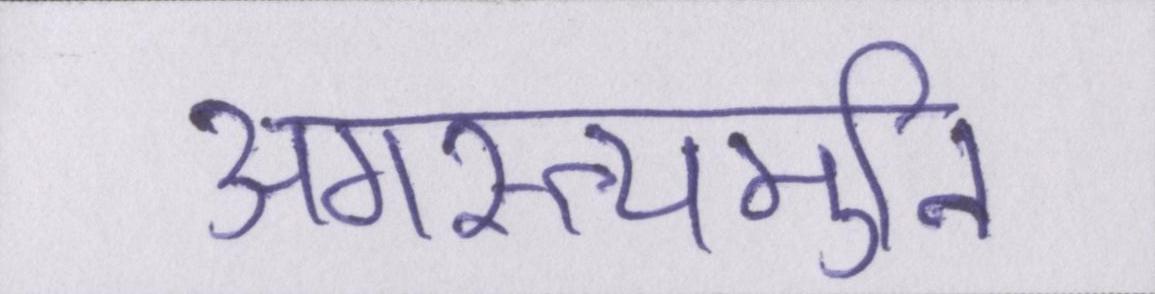 अगस्त्यमुनि